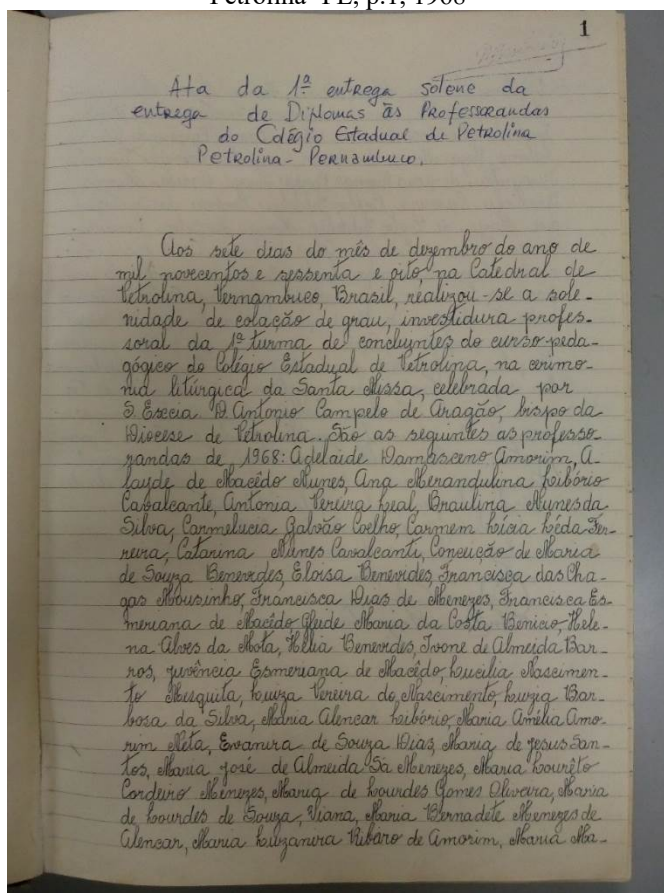 Petrolina- PE, p.1, 1968
1
Ata da 1ª entrega solene da
entrega de Diplomas às Professorandas
do Colégio Estadual de Petrolina
Petrolina - Pernambuco.
Aos sete dias do mês de dezembro do ano de
mil novecentos e sessenta e oito, na Catedral de
Petrolina, Pernambuco, Brasil, realizou-se a sole-
nidade de colação de grau, investidura profes-
soral da 1ª turma de concluintes do curso peda-
gógico do Colégio Estadual de Petrolina, na cerimo-
nia litúrgica da Santa Missa, celebrada por
S. Excia. D. Antonio Campelo de Aragão, bispo da
Diocese de Petrolina. São as seguintes as professo-
randas de 1968: Adelaide Damasceno Amorim, A-
layde de Macêdo Nunes, Ana Merandulina Libório
Cavalcante, Antonia Pereira Leal, Braulina Nunes da
Silva, Carmelucia Galvão Coelho, Carmem Lícia Léda Fer-
reira, Catarina Nunes Cavalcanti, Conceição de Maria
de Souza Benevides, Eloisa Benevides, Francisca das Cha-
gas Mousinho, Francisca Dias de Menezes, Francisca Es-
meriana de Macêdo, Gleide Maria da Costa Benício, Hele-
na Alves da Mota, Hélia Benevides, Ivone de Almeida Bar-
ros, Juvência Esmeriana de Macêdo, Lucilia Nascimen-
to Mesquita, Luiza Pereira do Nascimento, Luzia Bar-
bosa da Silva, Maria Alencar Libório, Maria Amélia Amo-
rim Neta, Evanira de Souza Dias, Maria de Jesus San-
tos, Maria José de Almeida Sá Menezes, Maria Lourêto
Cordeiro Menezes, Maria de Lourdes Gomes Oliveira, Maria
de Lourdes de Souza, Viana, Maria Bernadete Menezes de
Alencar, Maria Luzanira Ribaro de Amorim, Maria Ma-